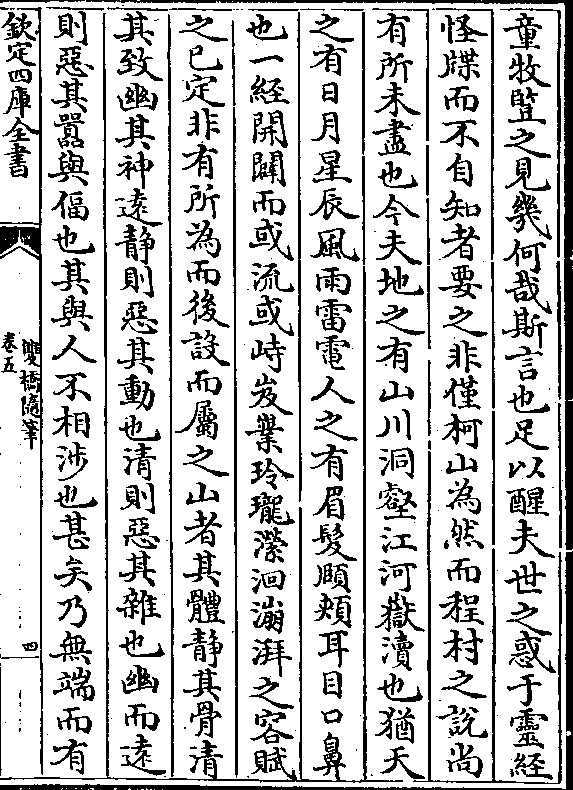 童牧豎之見幾何哉斯言也足以醒夫世之惑于靈經
怪牒而不自知者要之非僅柯山為然而程村之說尚
有所未盡也今夫地之有山川洞壑江河嶽瀆也猶天
之有日月星辰風雨雷電人之有眉髮頤頰耳目口鼻
也一經開闢而或流或峙岌嶪玲瓏瀠洄漰湃之容賦
之已定非有所為而後設而屬之山者其體靜其骨清
其致幽其神遠靜則惡其動也清則惡其雜也幽而遠
則惡其囂與偪也其與人不相涉也甚矣乃無端而有
欽定四庫全書
雙橋隨筆
卷五
四